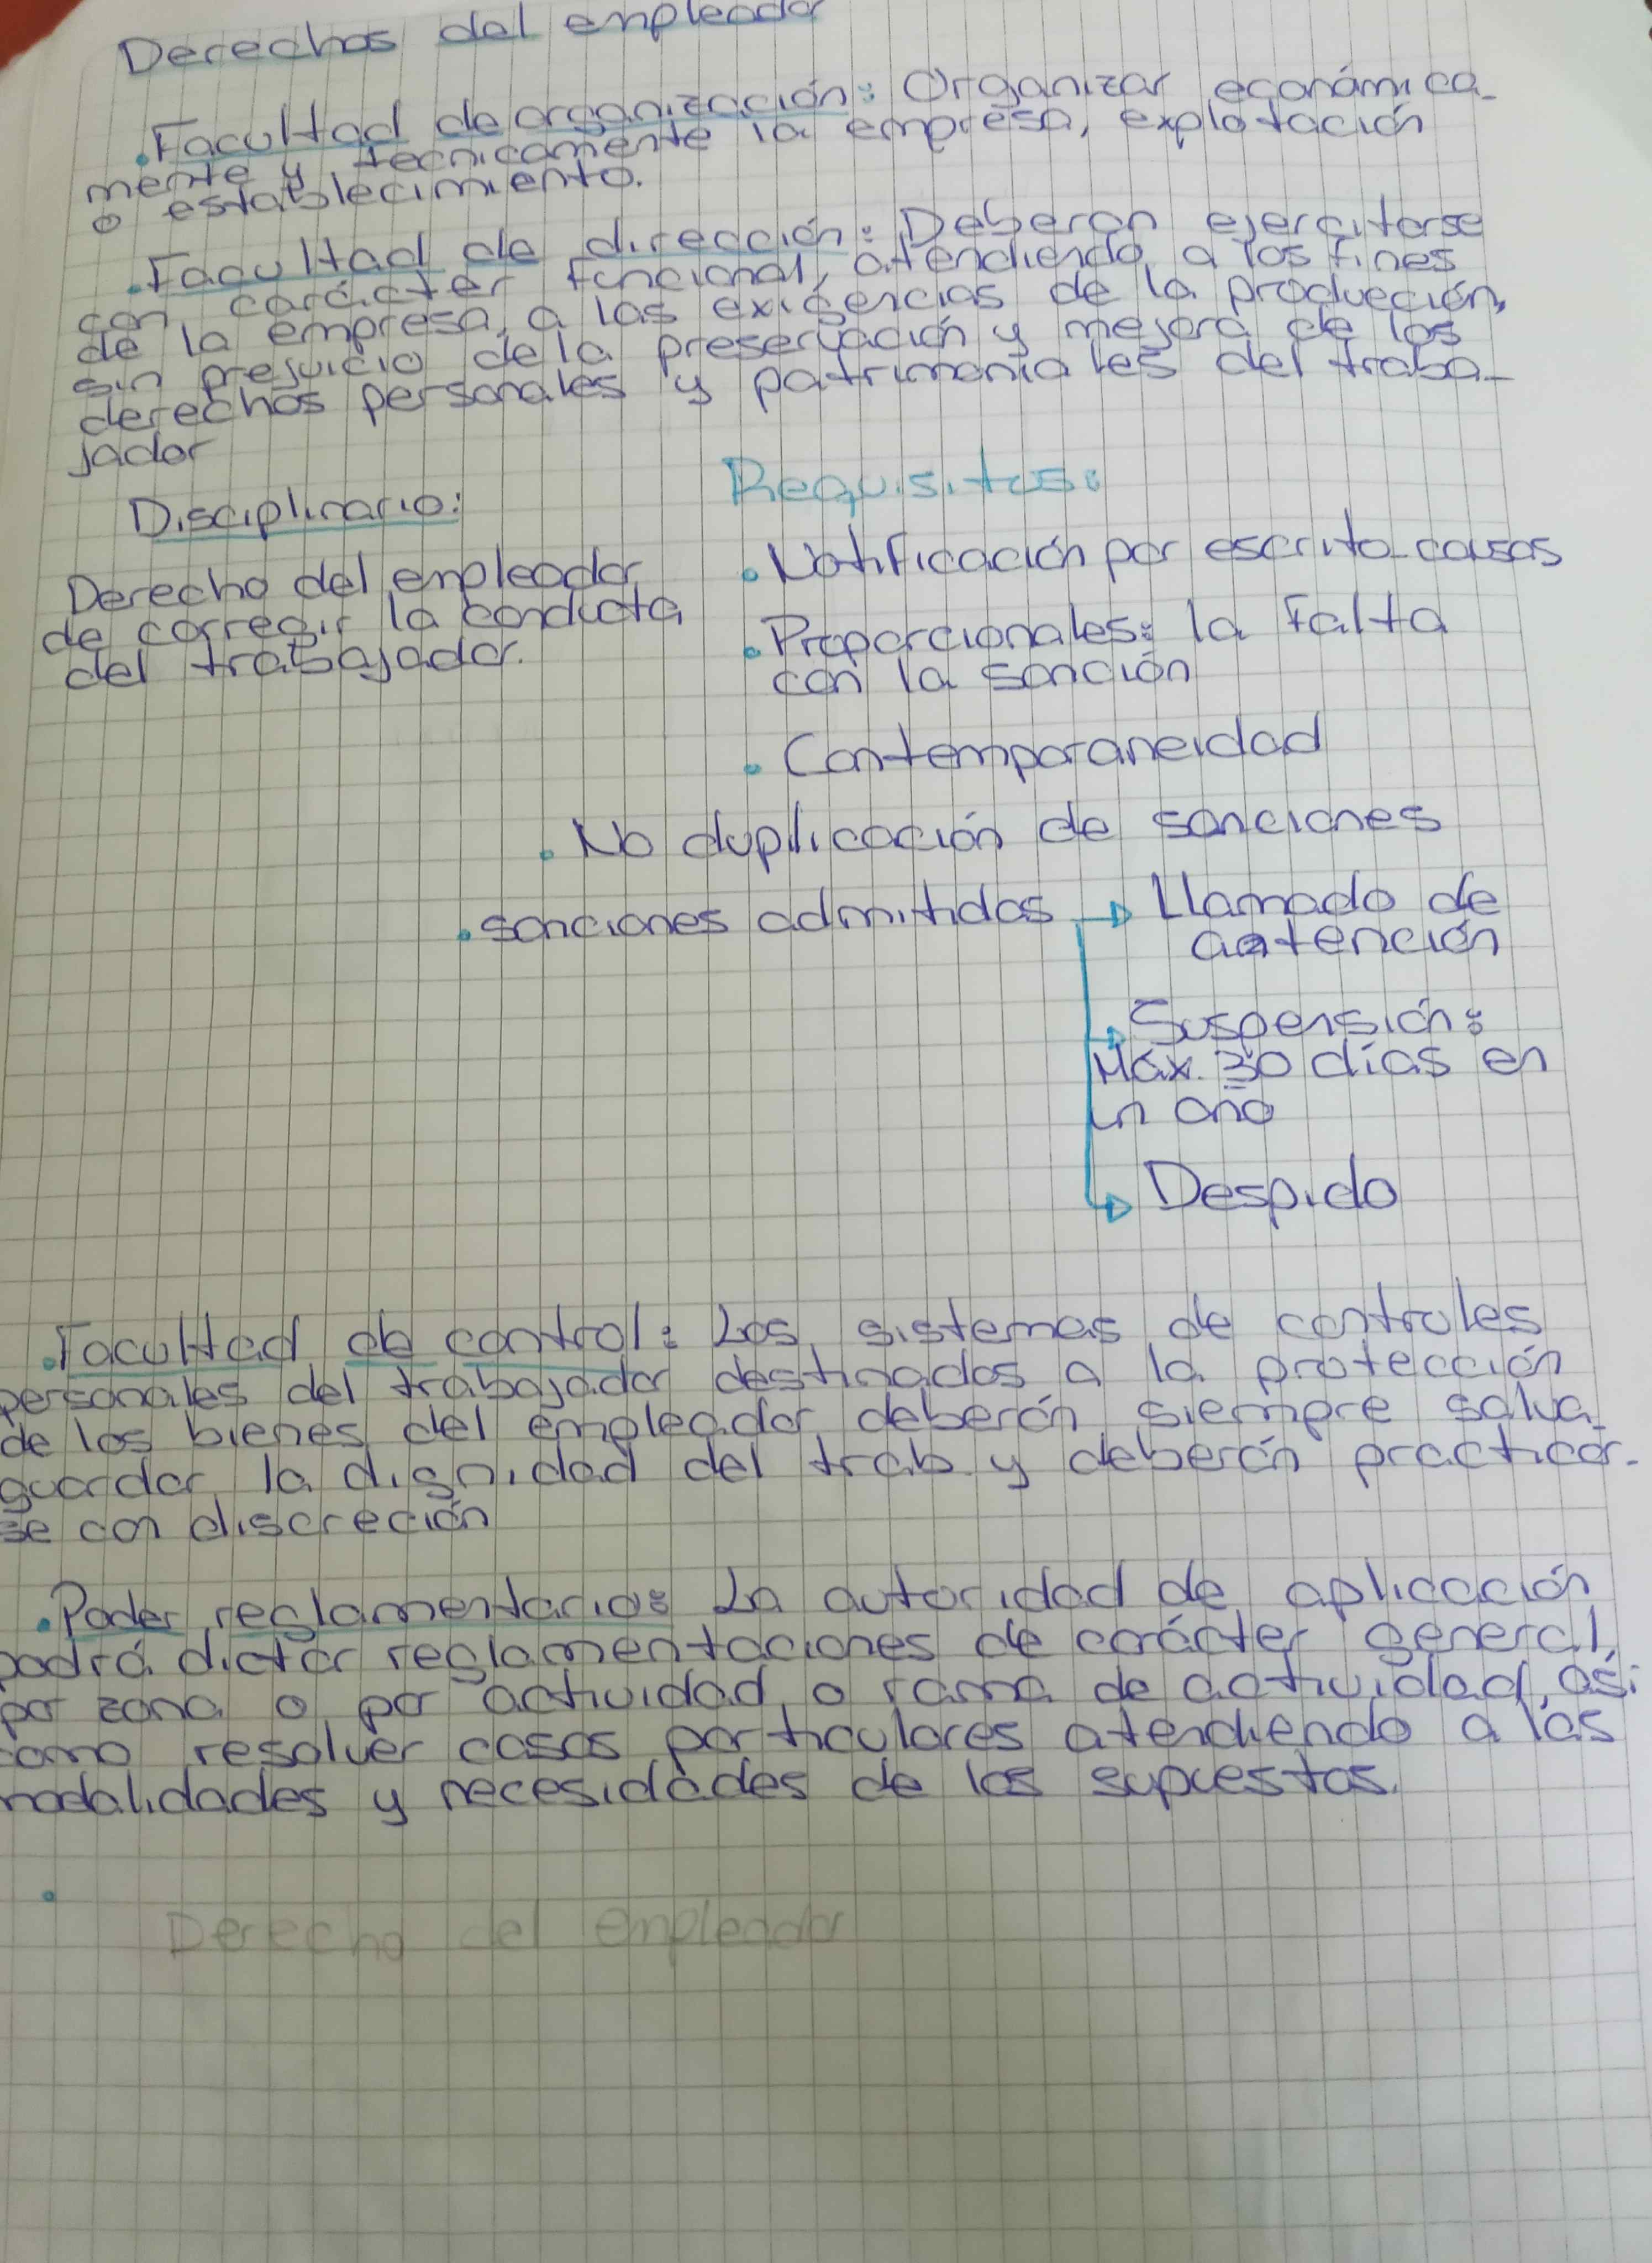 Derechos del empleador
.Facultad de organización: Organizar económica-
mente y técnicamente la empresa, explotación
o establecimiento.
.Facultad de dirección: Deberan ejercitarse
con carácter funcional, atendiendo a los fines
de la empresa, a las exigencias de la producción,
sin prejuicio de la preservación y mejora de los
derechos personales y patrimoniales del traba-
jador
Disciplinario:
Derecho del empleador
de corregir la conducta
del trabajador.
Requisitos:
. Notificación por escrito-causas
. Proporcionales: la falta
con la sanción
. Contemporaneidad
. No duplicación de sanciones
. sanciones admitidas → Llamado de
atención
→ Suspensión:
Máx. 30 días en
un año
→ Despido
.Facultad de control: Los sistemas de controles
personales del trabajador destinados a la protección
de los bienes del empleador deberán siempre salva-
guardar la dignidad del trab. y deberán practicar-
se con discreción
.Poder reglamentario: La autoridad de aplicación
podrá dictar reglamentaciones de carácter general,
por zona o por actividad o rama de actividad, así
como resolver casos particulares atendiendo a las
modalidades y necesidades de los supuestos.
.
Derecho del empleador